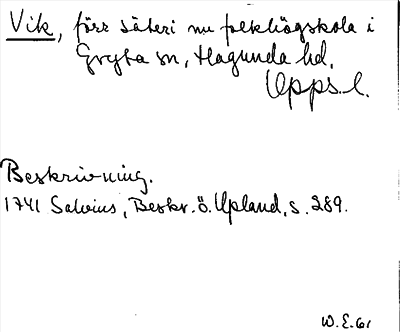 Vik, förr säteri nu folkhögskola i
Gryta sn, Hagunda hd.
Upps. l.
Beskrivning.
1741 Salvius, Beskr. ö. Upland, s. 289.
W.E. 61